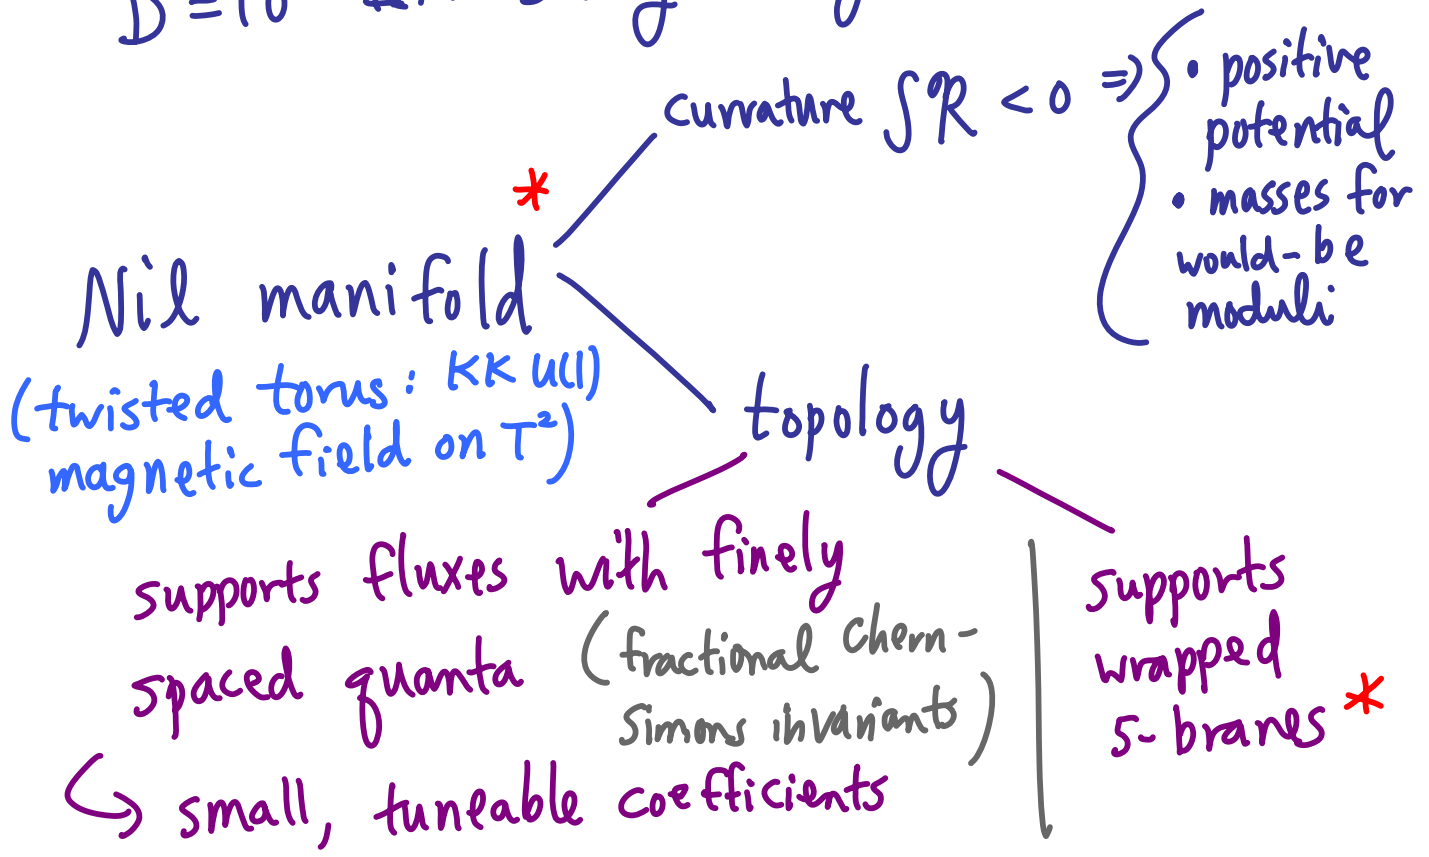 D = 10
curvature ∫R < 0 ⇒
• positive
potential
• masses for
would-be
moduli
*
Nil manifold
(twisted torus: KK U(1)
magnetic field on T²)
topology
supports fluxes with finely
spaced quanta
(fractional Chern-
Simons invariants)
small, tuneable coefficients
supports
wrapped
5-branes *